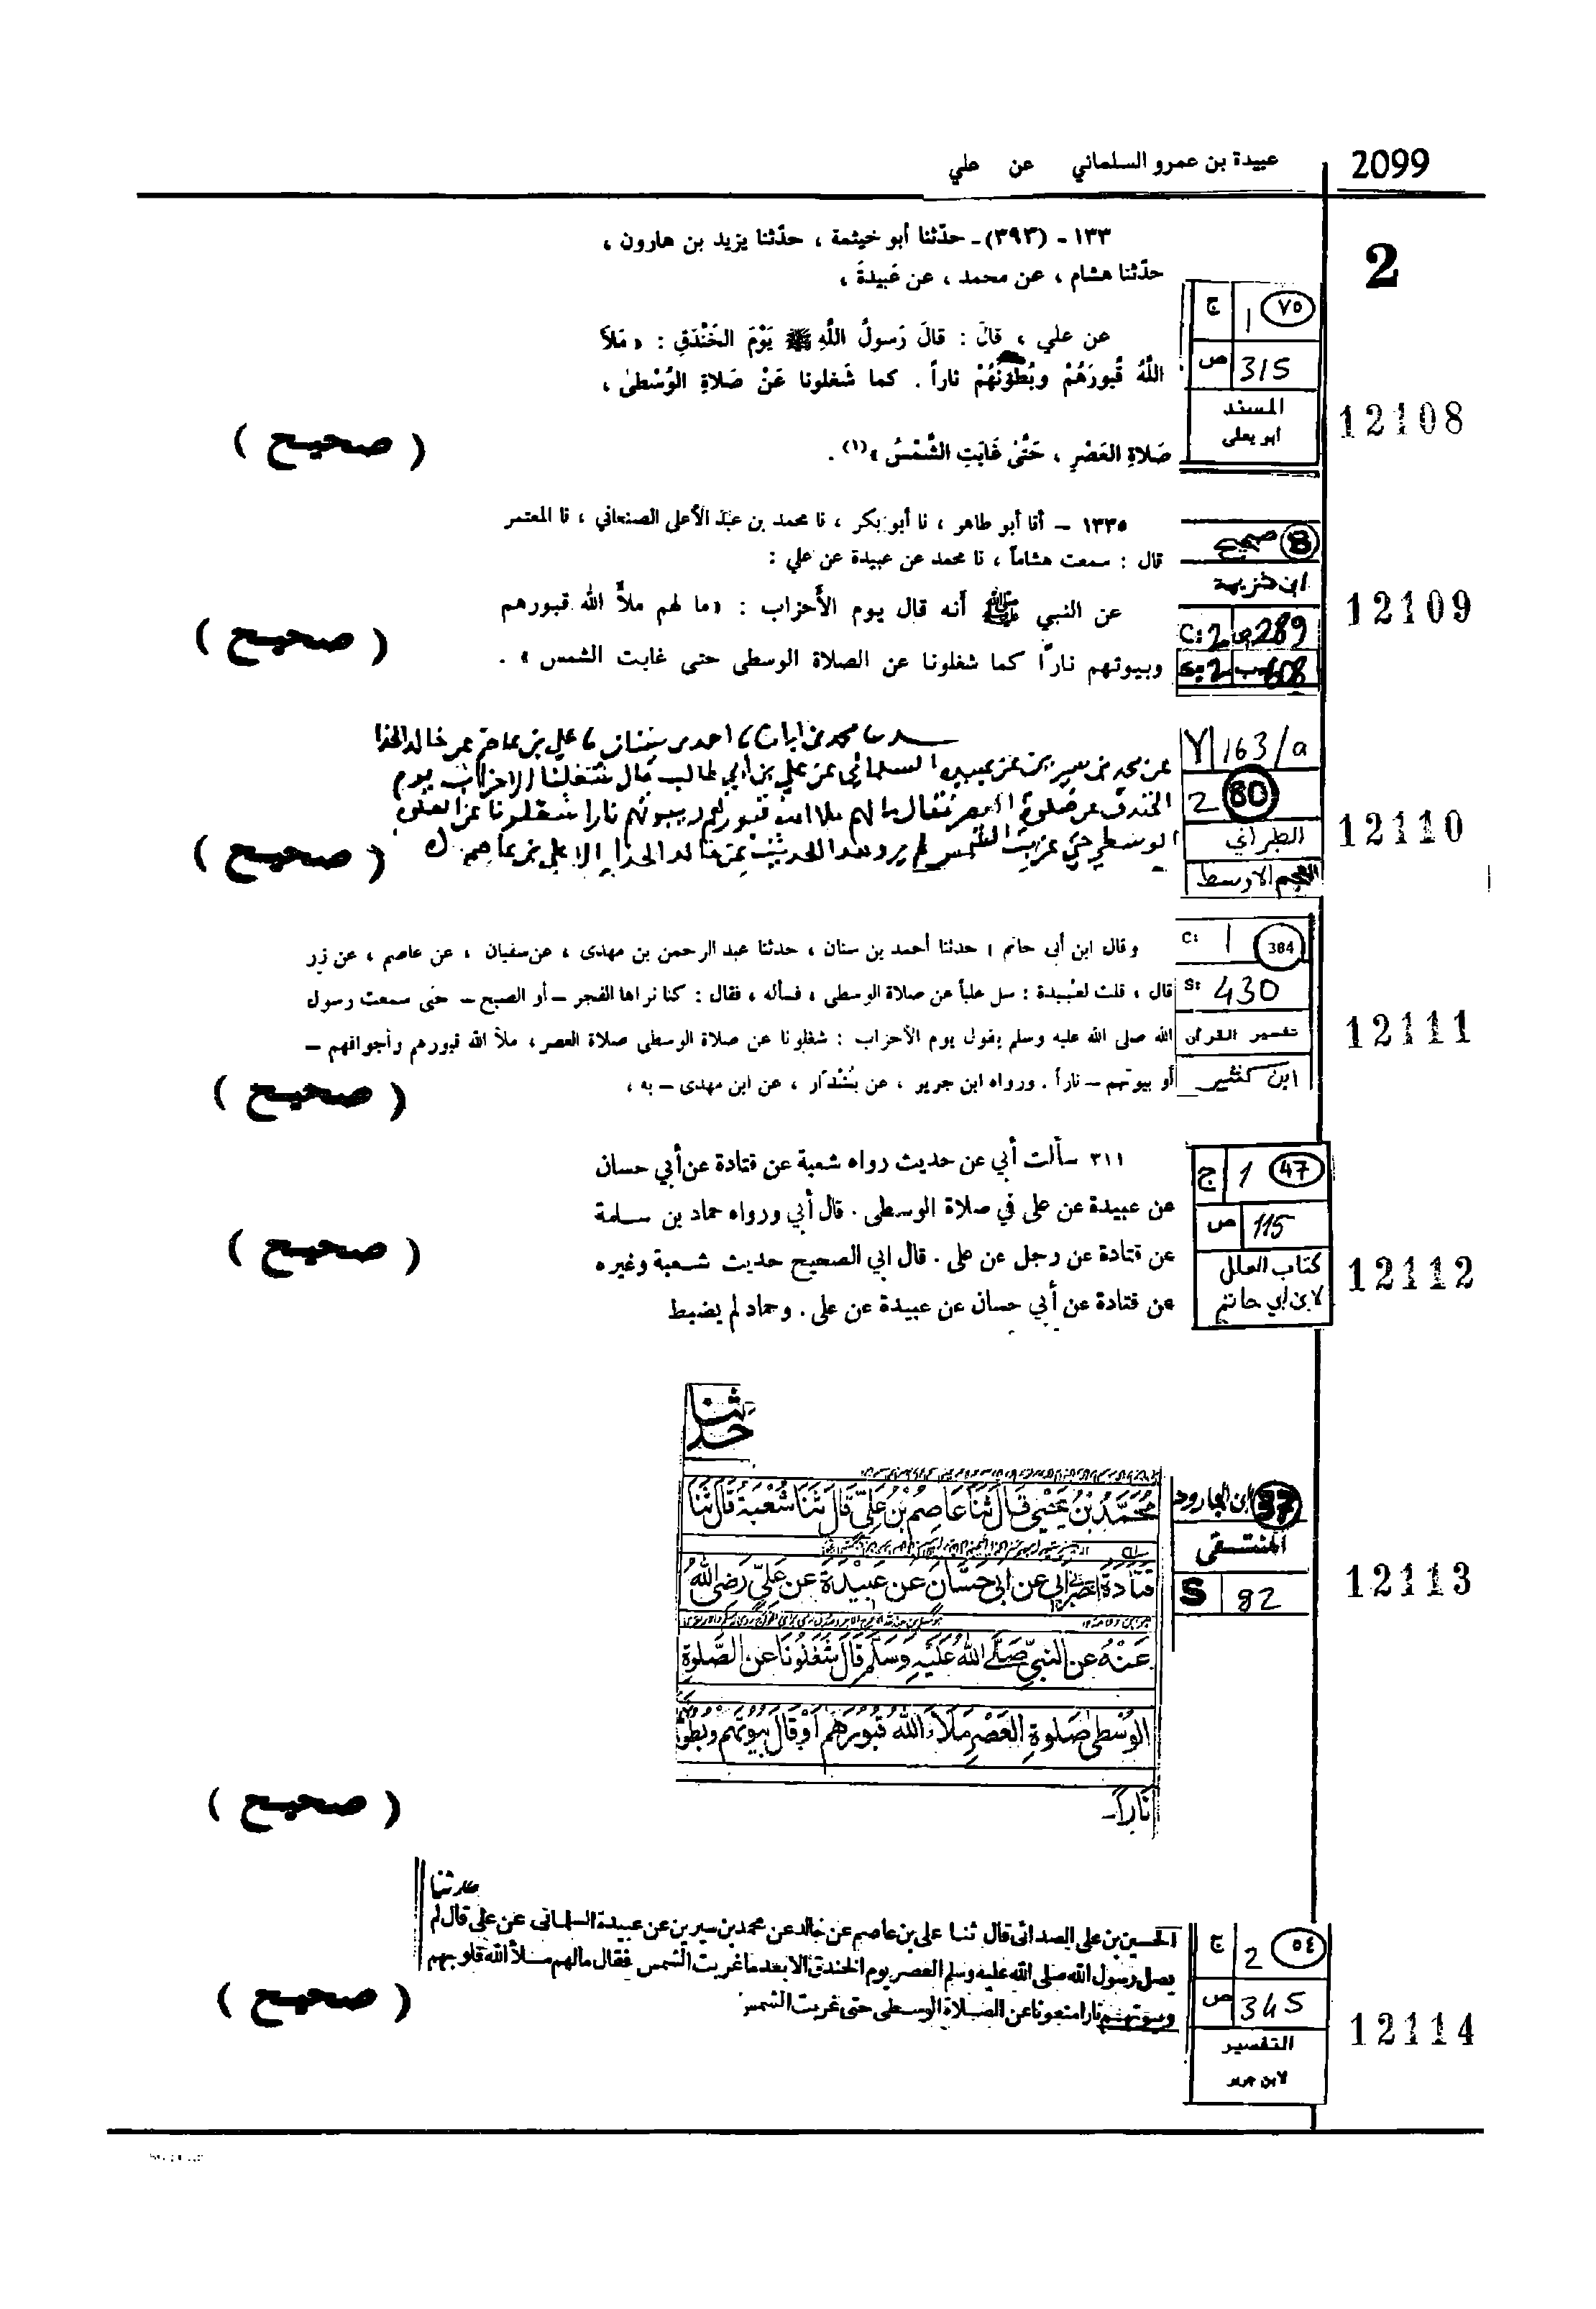 2099
عبيدة بن عمرو السلماني عن علي
2
١٣٣ - (٣٩٣) - حدّثنا أبو خيثمة ، حدّثنا يزيد بن هارون ،
حدّثنا هشام ، عن محمد ، عن عَبيدةَ ،
عن علي ، قالَ : قالَ رَسولُ اللَّهِ ﷺ يَوْمَ الخَنْدَقِ : « مَلأَ
اللَّهُ قُبورَهُمْ وبُطُونَهُمْ ناراً . كما شَغلونا عَنْ صَلاةِ الوُسْطىٰ ،
صَلاةِ العَصْرِ ، حَتَّىٰ غَابَتِ الشَّمْسُ »(١) .
٧٥ 1 ج
315 ص
المسند
أبو يعلى
12108
( صحيح )
١٣٣٥ - أنا أبو طاهر ، نا أبو بكر ، نا محمد بن عبد الأعلى الصنعاني ، نا المعتمر
قال : سمعت هشاماً ، نا محمد عن عبيدة عن علي :
عن النبي ﷺ أنه قال يوم الأحزاب : «ما لهم ملأ الله قبورهم
وبيوتهم ناراً كما شغلونا عن الصلاة الوسطى حتى غابت الشمس » .
8 صحيح
ابن خزيمة
C: 2 289
S: 2 608
12109
( صحيح )
احمد بن سنان علي بن عاصم عن خالد الحذا
عن محمد بن سيرين عن عبيده السلماني عن علي بن ابي طالب قال شغلنا الاحزاب يوم
الخندق عن صلوة العصر فقال ما لهم ملا الله قبورهم وبيوتهم نارا شغلونا عن الصلوه
الوسطي حتي غربت الشمس لم يرو هذا الحديث عن خالد الحذا الا علي بن عاصم
Y 163/a
2 80
الطبراني
المعجم الاوسط
12110
( صحيح )
وقال ابن أبي حاتم : حدثنا أحمد بن سنان ، حدثنا عبد الرحمن بن مهدى ، عن سفيان ، عن عاصم ، عن زر
قال ، قلت لعَبيدة : سل علياً عن صلاة الوسطى ، فسأله ، فقال : كنا نراها الفجر – أو الصبح – حتى سمعت رسول
الله صلى الله عليه وسلم يقول يوم الأحزاب : شغلونا عن صلاة الوسطى صلاة العصر ، ملأ الله قبورهم وأجوافهم –
أو بيوتهم – ناراً . ورواه ابن جرير ، عن بُنْدَار ، عن ابن مهدى – به ،
C: 1 384
S: 430
تفسير القرآن
ابن كثير
12111
( صحيح )
٣١١ سألت أبي عن حديث رواه شعبة عن قتادة عن أبي حسان
عن عبيدة عن على في صلاة الوسطى . قال أبي ورواه حماد بن سلمة
عن قتادة عن رجل عن على . قال ابي الصحيح حديث شعبة وغيره
عن قتادة عن أبي حسان عن عبيدة عن على . وحماد لم يضبط
47 1 ج
115 ص
كتاب العلل
لابن ابي حاتم
12112
( صحيح )
حدثنا
مُحَمَّدُ بْنُ يَحْيٰى قَالَ ثَنَا عَاصِمُ بْنُ عَلِيٍّ قَالَ ثَنَا شُعْبَةُ قَالَ ثَنَا
قَتَادَةُ اَخْبَرَنِي عَنْ اَبِي حَسَّانَ عَنْ عَبِيْدَةَ عَنْ عَلِيٍّ رَضِيَ اللهُ
عَنْهُ عَنِ النَّبِيِّ صَلَّى اللهُ عَلَيْهِ وَسَلَّمَ قَالَ شَغَلُوْنَا عَنِ الصَّلٰوةِ
الْوُسْطٰى صَلٰوةِ الْعَصْرِ مَلَأَ اللهُ قُبُوْرَهُمْ اَوْ قَالَ بُيُوْتَهُمْ وَبُطُوْنَهُمْ
نَارًا-
37 ابن الجارود
المنتقى
S 92
12113
( صحيح )
حدثنا
الحسين بن على الصدائى قال ثنا على بن عاصم عن خالد عن محمد بن سيرين عن عبيدة السلمانى عن على قال لم
يصل رسول الله صلى الله عليه وسلم العصر يوم الخندق الا بعد ما غربت الشمس فقال ما لهم ملأ الله قلوبهم
وبيوتهم نارا منعونا عن الصلاة الوسطى حتى غربت الشمس
٥٤ 2 ج
345 ص
التفسير
لابن جرير
12114
( صحيح )